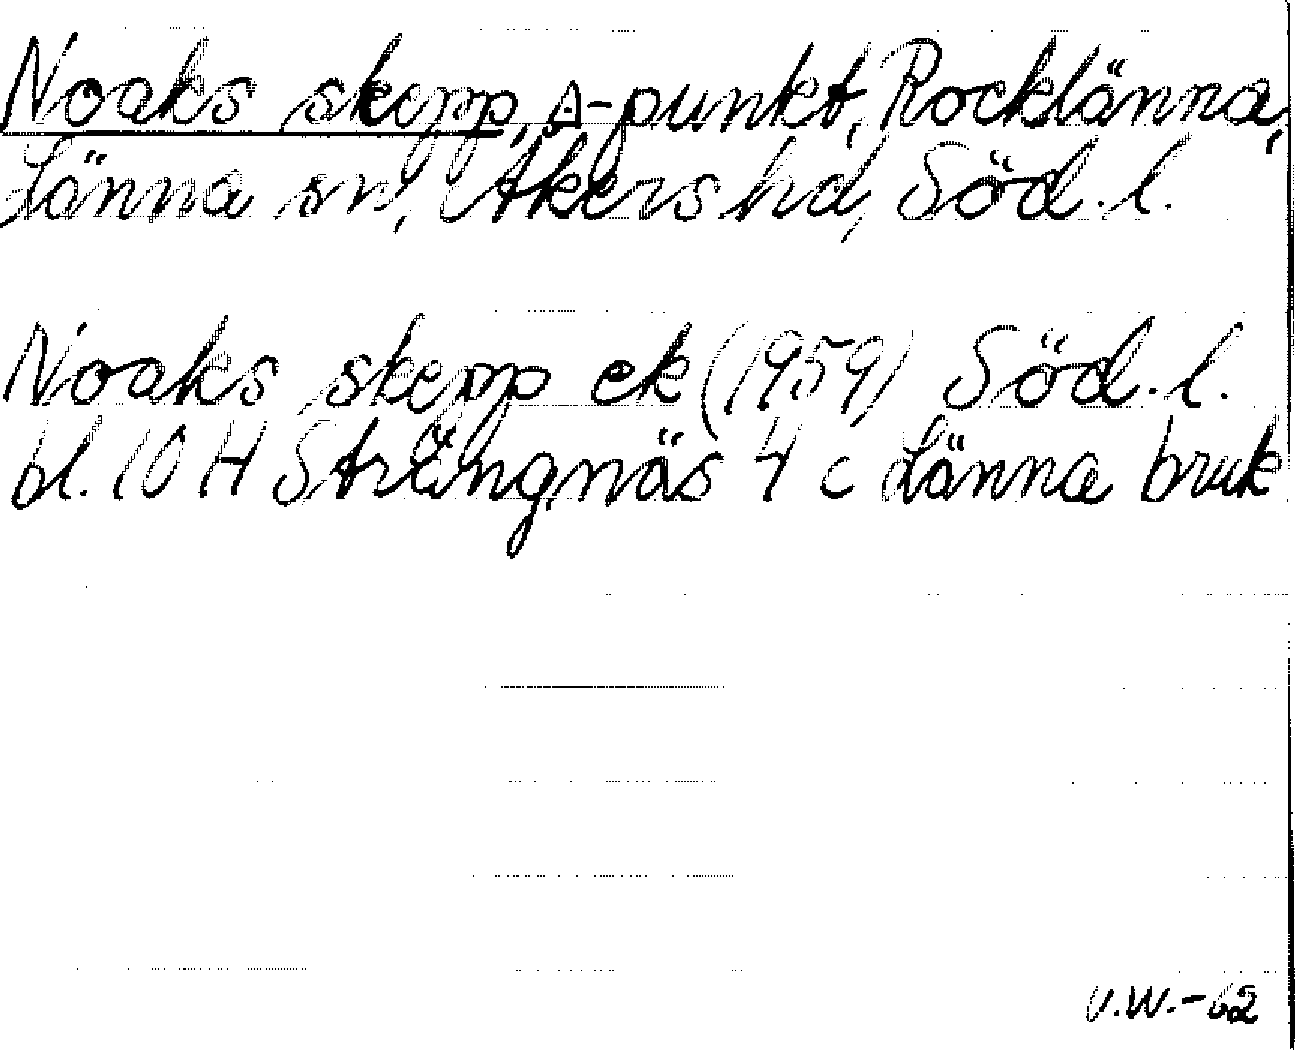 Noaks skepp, △-punkt, Rocklänna,
Länna sn, Åkers hd, Söd. l.
Noaks skepp ek (1959) Söd. l.
bl. 10 H Strängnäs 4 c Länna bruk
V.W.-62